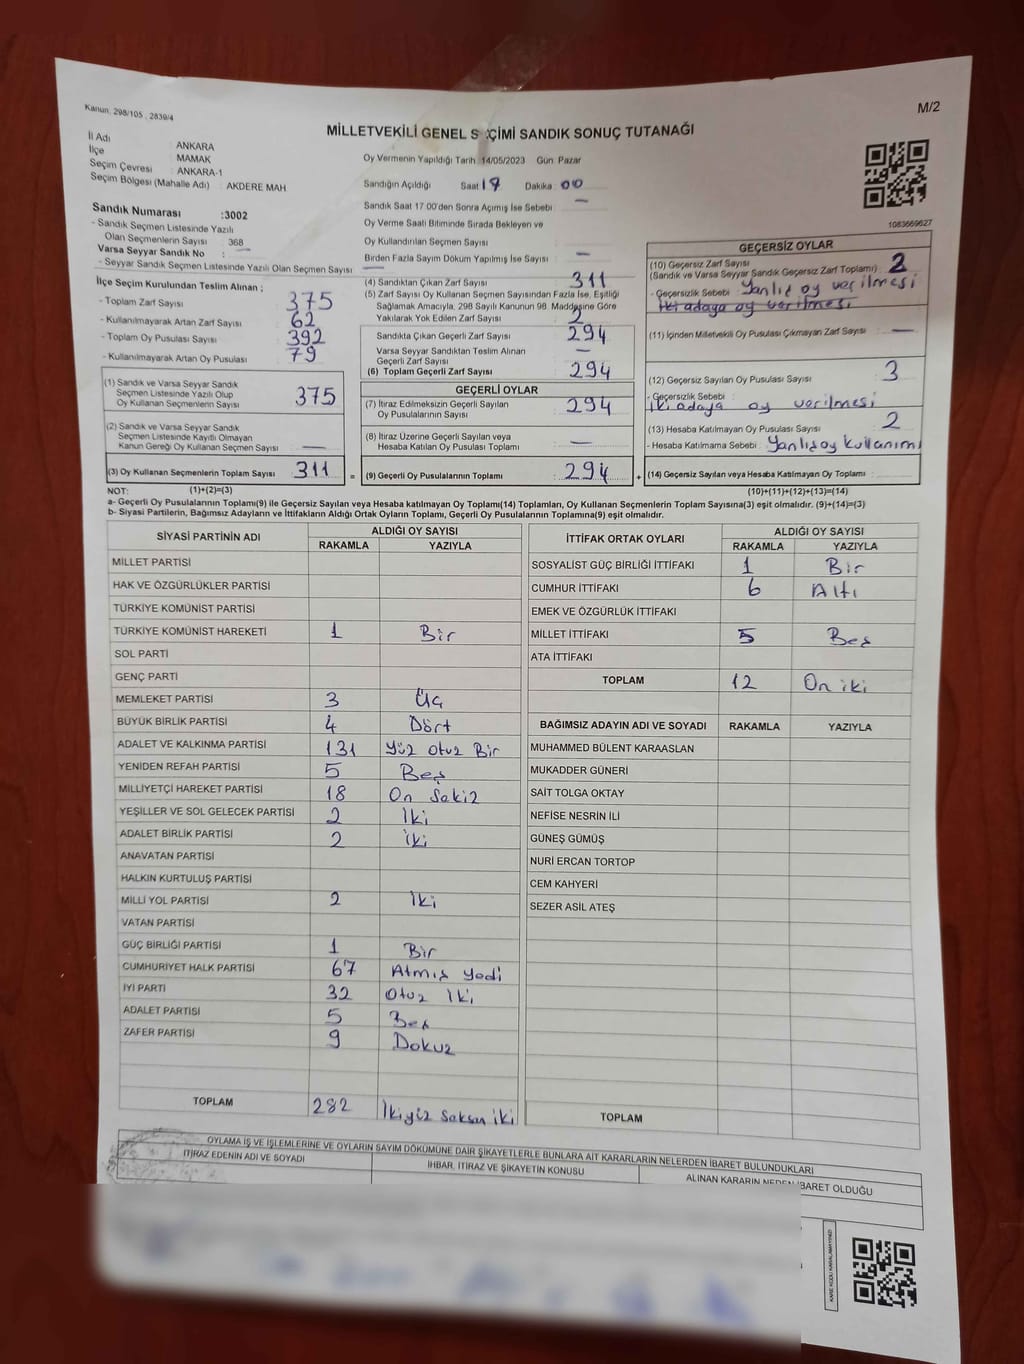 Kanun. 298/105 , 2839/4
M/2
MİLLETVEKİLİ GENEL S ÇİMİ SANDIK SONUÇ TUTANAĞI
İl Adı : ANKARA
İlçe : MAMAK
Seçim Çevresi : ANKARA-1
Seçim Bölgesi (Mahalle Adı) : AKDERE MAH
Oy Vermenin Yapıldığı Tarih : 14/05/2023 Gün: Pazar
Sandığın Açıldığı Saat : 17 Dakika : 00
Sandık Saat 17.00'den Sonra Açımış İse Sebebi : —
Oy Verme Saati Bitiminde Sırada Bekleyen ve
Oy Kullandırılan Seçmen Sayısı
Birden Fazla Sayım Döküm Yapılmış İse Sayısı : —
Sandık Numarası :3002
- Sandık Seçmen Listesinde Yazılı
Olan Seçmenlerin Sayısı : 368
Varsa Seyyar Sandık No : —
- Seyyar Sandık Seçmen Listesinde Yazılı Olan Seçmen Sayısı : —
İlçe Seçim Kurulundan Teslim Alınan ;
- Toplam Zarf Sayısı : 375
- Kullanılmayarak Artan Zarf Sayısı : 62
- Toplam Oy Pusulası Sayısı : 392
- Kullanılmayarak Artan Oy Pusulası : 79
(1) Sandık ve Varsa Seyyar Sandık
Seçmen Listesinde Yazılı Olup
Oy Kullanan Seçmenlerin Sayısı : 375
(2) Sandık ve Varsa Seyyar Sandık
Seçmen Listesinde Kayıtlı Olmayan
Kanun Gereği Oy Kullanan Seçmen Sayısı : —
(3) Oy Kullanan Seçmenlerin Toplam Sayısı : 311
(4) Sandıktan Çıkan Zarf Sayısı : 311
(5) Zarf Sayısı Oy Kullanan Seçmen Sayısından Fazla İse, Eşitliği
Sağlamak Amacıyla, 298 Sayılı Kanunun 98. Maddesine Göre
Yakılarak Yok Edilen Zarf Sayısı : 2
Sandıkta Çıkan Geçerli Zarf Sayısı : 294
Varsa Seyyar Sandıktan Teslim Alınan
Geçerli Zarf Sayısı : —
(6) Toplam Geçerli Zarf Sayısı : 294
GEÇERLİ OYLAR
(7) İtiraz Edilmeksizin Geçerli Sayılan
Oy Pusulalarının Sayısı : 294
(8) İtiraz Üzerine Geçerli Sayılan veya
Hesaba Katılan Oy Pusulalarının Toplamı : —
= (9) Geçerli Oy Pusulalarının Toplamı : 294 +
1083669627
GEÇERSİZ OYLAR
(10) Geçersiz Zarf Sayısı : 2
(Sandık ve Varsa Seyyar Sandık Geçersiz Zarf Toplamı)
- Geçersizlik Sebebi : Yanlış oy verilmesi
iki adaya oy verilmesi
(11) İçinden Milletvekili Oy Pusulası Çıkmayan Zarf Sayısı : —
(12) Geçersiz Sayılan Oy Pusulası Sayısı : 3
- Geçersizlik Sebebi :
iki adaya oy verilmesi
(13) Hesaba Katılmayan Oy Pusulası Sayısı : 2
- Hesaba Katılmama Sebebi : Yanlış oy kullanımı
(14) Geçersiz Sayılan veya Hesaba Katılmayan Oy Toplamı :
NOT: (1)+(2)=(3) (10)+(11)+(12)+(13)=(14)
a- Geçerli Oy Pusulalarının Toplamı(9) ile Geçersiz Sayılan veya Hesaba katılmayan Oy Toplamı(14) Toplamları, Oy Kullanan Seçmenlerin Toplam Sayısına(3) eşit olmalıdır. (9)+(14)=(3)
b- Siyasi Partilerin, Bağımsız Adayların ve İttifakların Aldığı Ortak Oyların Toplamı, Geçerli Oy Pusulalarının Toplamına(9) eşit olmalıdır.
SİYASİ PARTİNİN ADI ALDIĞI OY SAYISI
RAKAMLA YAZIYLA
MİLLET PARTİSİ
HAK VE ÖZGÜRLÜKLER PARTİSİ
TÜRKİYE KOMÜNİST PARTİSİ
TÜRKİYE KOMÜNİST HAREKETİ 1 Bir
SOL PARTİ
GENÇ PARTİ
MEMLEKET PARTİSİ 3 Üç
BÜYÜK BİRLİK PARTİSİ 4 Dört
ADALET VE KALKINMA PARTİSİ 131 Yüz otuz Bir
YENİDEN REFAH PARTİSİ 5 Beş
MİLLİYETÇİ HAREKET PARTİSİ 18 On Sekiz
YEŞİLLER VE SOL GELECEK PARTİSİ 2 İki
ADALET BİRLİK PARTİSİ 2 iki
ANAVATAN PARTİSİ
HALKIN KURTULUŞ PARTİSİ
MİLLİ YOL PARTİSİ 2 İki
VATAN PARTİSİ
GÜÇ BİRLİĞİ PARTİSİ 1 Bir
CUMHURİYET HALK PARTİSİ 67 Atmış yedi
İYİ PARTİ 32 Otuz İki
ADALET PARTİSİ 5 Beş
ZAFER PARTİSİ 9 Dokuz
TOPLAM 282 İkiyüz Seksen iki
İTTİFAK ORTAK OYLARI ALDIĞI OY SAYISI
RAKAMLA YAZIYLA
SOSYALİST GÜÇ BİRLİĞİ İTTİFAKI 1 Bir
CUMHUR İTTİFAKI 6 Altı
EMEK VE ÖZGÜRLÜK İTTİFAKI
MİLLET İTTİFAKI 5 Beş
ATA İTTİFAKI
TOPLAM 12 On iki
BAĞIMSIZ ADAYIN ADI VE SOYADI RAKAMLA YAZIYLA
MUHAMMED BÜLENT KARAASLAN
MUKADDER GÜNERİ
SAİT TOLGA OKTAY
NEFİSE NESRİN İLİ
GÜNEŞ GÜMÜŞ
NURİ ERCAN TORTOP
CEM KAHYERİ
SEZER ASIL ATEŞ
TOPLAM
OYLAMA İŞ VE İŞLEMLERİNE VE OYLARIN SAYIM DÖKÜMÜNE DAİR ŞİKAYETLERLE BUNLARA AİT KARARLARIN NELERDEN İBARET BULUNDUKLARI
İTİRAZ EDENİN ADI VE SOYADI İHBAR, İTİRAZ VE ŞİKAYETİN KONUSU ALINAN KARARIN NEDEN İBARET OLDUĞU
KARE KODU KARALAMAYINIZ!